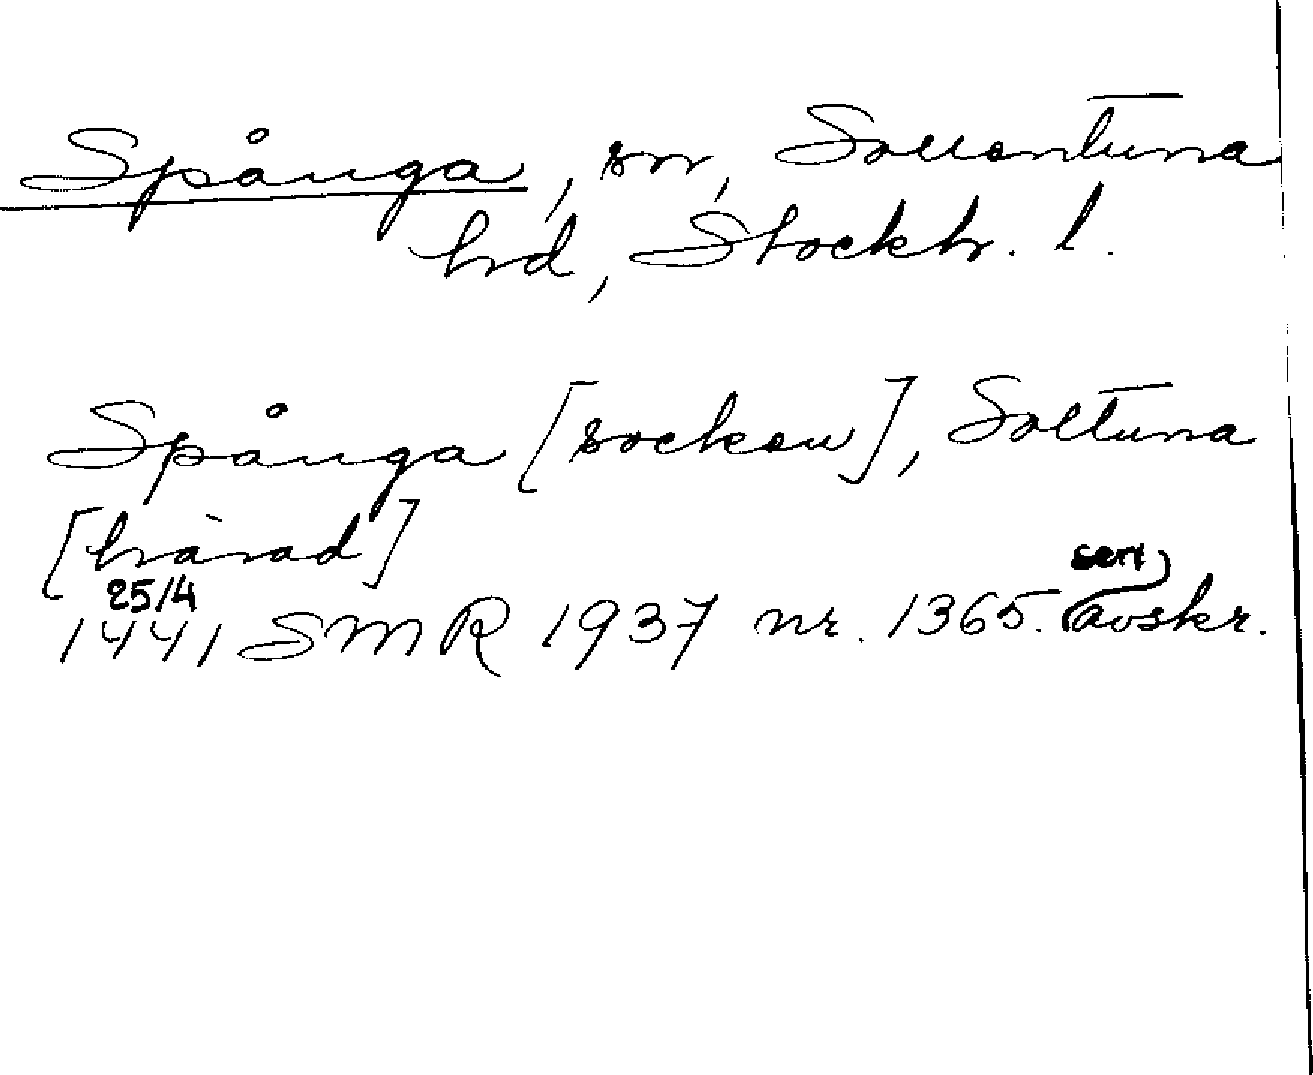 Spånga, sn, Sollentuna
hd, Stockh. l.
Spånga [socken], Soltuna
[härad]
25/4 sen
1441 SMR 1937 nr. 1365. avskr.